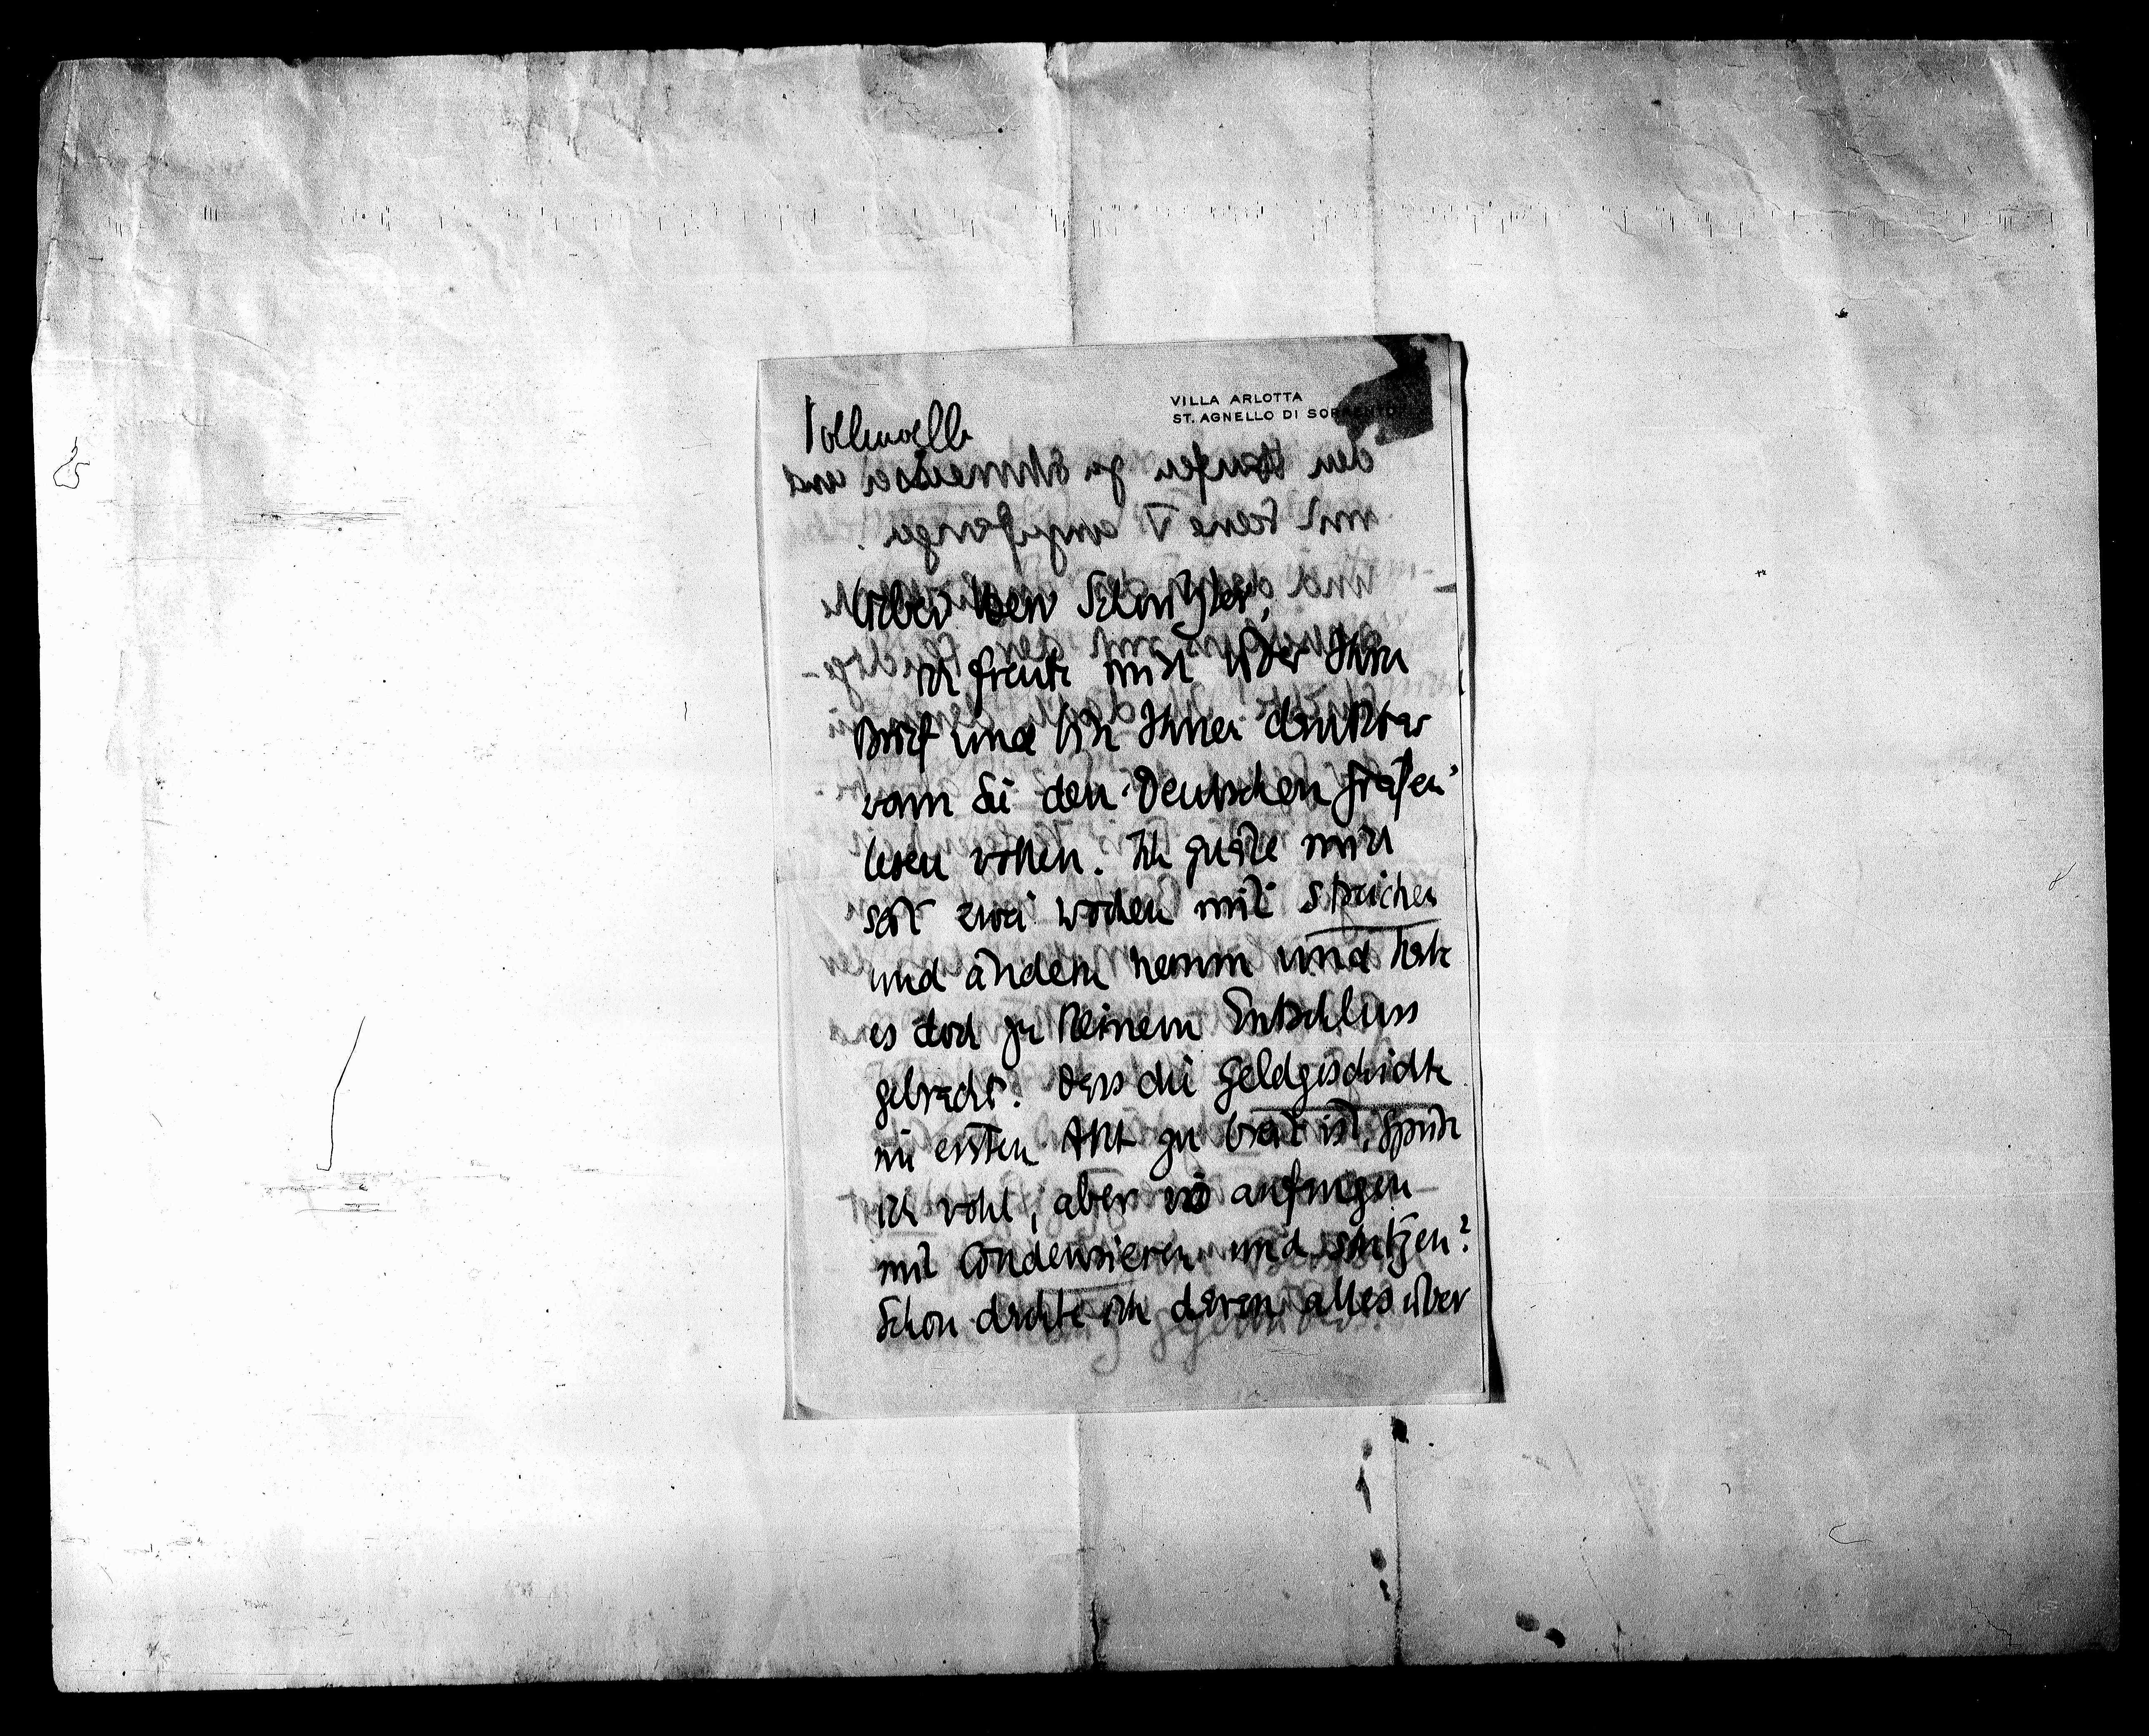 VILLA ARLOTTA
ST. AGNELLO DI SORRENTO
Vollmoeller
Lieber Herr Schnitzler,
ich freute mich über Ihren
Brief und bin Ihnen dankbar
wenn Sie den "Deutschen Grafen"
lesen wollen. Ich quäle mich
seit zwei Wochen mit Streichen
und ändern herum und habe
es doch zu keinem Entschluss
gebracht. Dass die Geldgeschichte
im ersten Akt zu breit ist, spürte
ich wohl, aber wo anfangen
mit Condensieren und stutzen?
Schon dachte ich daran alles über